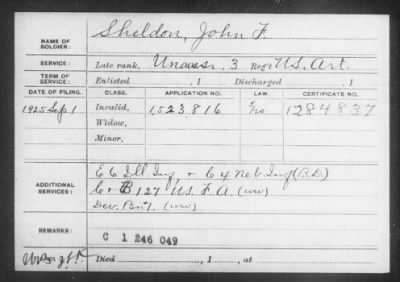 NAME OF SOLDIER: Sheldon, John F.
SERVICE: Late rank, Unass. 3 Reg't U.S. Art.
TERM OF SERVICE: Enlisted , 1 Discharged , 1
DATE OF FILING. CLASS. APPLICATION NO. LAW. CERTIFICATE NO.
1925 Sep. 1 Invalid, 1,523,816 5/20 1284837
Widow,
Minor,
ADDITIONAL SERVICES: E 6 Ill Inf & C 4 Neb Inf (B.D.)
C & B 127 U.S. F.A. (WW)
Dev. Bn 1. (WW)
REMARKS: C 1 246 049
Died , 1 , at